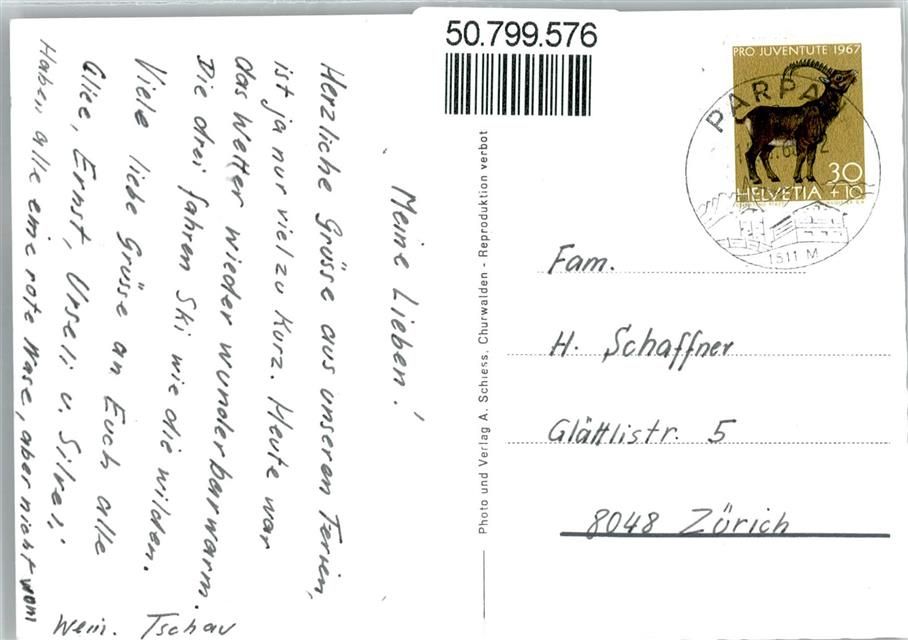 50.799.576
PRO JUVENTUTE 1967
PARPAN
30
HELVETIA +10
1511 M
Meine Lieben!
Herzliche Grüsse aus unseren Ferien,
ist ja nur viel zu kurz. Heute war
das Wetter wieder wunderbar warm.
Die drei fahren Ski wie die wilden.
Viele liebe Grüsse an Euch alle
Alice, Ernst, Urseli u. Silvei.
Haben alle eine rote Nase, aber nicht vom
Wein. Tschau
Photo und Verlag A. Schiess, Churwalden - Reproduktion verbot
Fam.
H. Schaffner
Glättlistr. 5
8048 Zürich